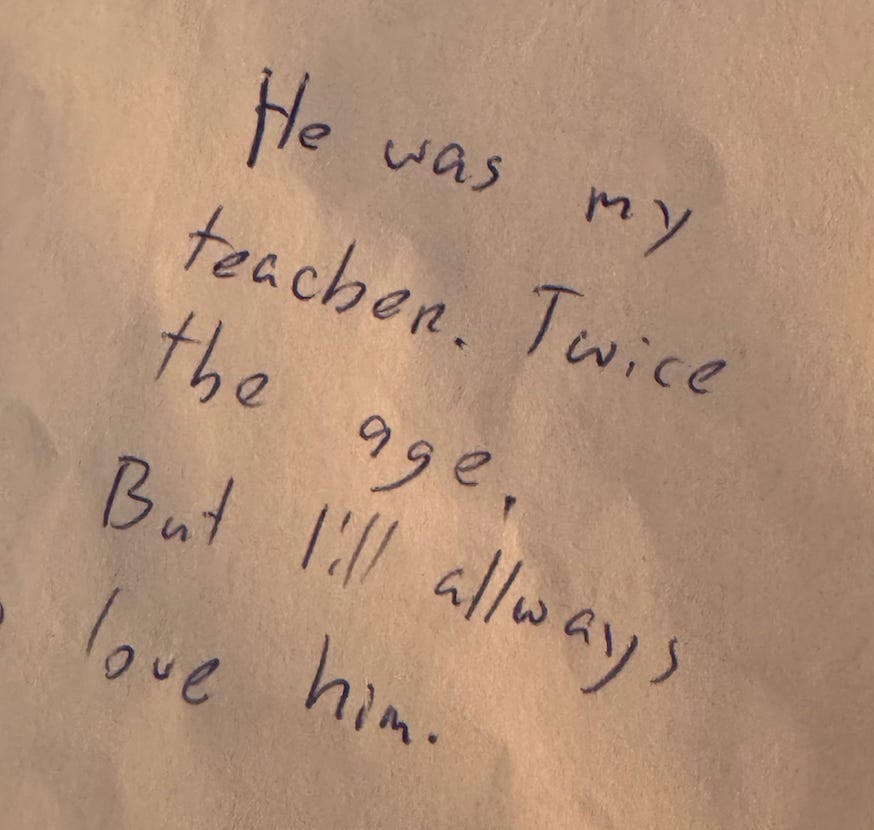 He was my
teacher. Twice
the age.
But I'll allways
love him.